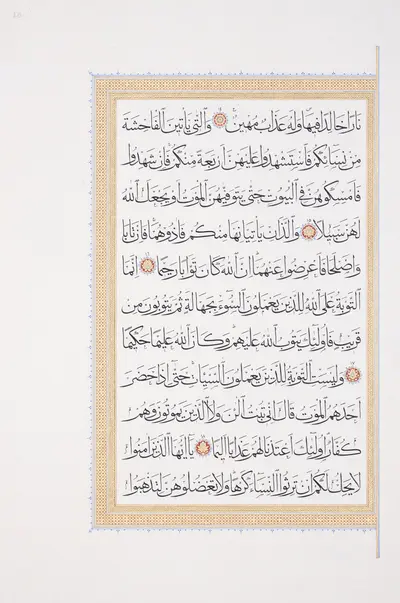 نَارًا خَالِدًا فِيهَا وَلَهُ عَذَابٌ مُهِينٌ وَالّٰتِي يَأْتِينَ الْفَاحِشَةَ
مِنْ نِسَائِكُمْ فَاسْتَشْهِدُوا عَلَيْهِنَّ أَرْبَعَةً مِنْكُمْ فَإِنْ شَهِدُوا
فَامْسِكُوهُنَّ فِي الْبُيُوتِ حَتَّى يَتَوَفّٰيهُنَّ الْمَوْتُ أَوْ يَجْعَلَ اللهُ
لَهُنَّ سَبِيلًا وَالَّذَانِ يَأْتِيَانِهَا مِنْكُمْ فَاٰذُوهُمَا فَإِنْ تَابَا
وَأَصْلَحَا فَأَعْرِضُوا عَنْهُمَا إِنَّ اللهَ كَانَ تَوَّابًا رَحِيمًا إِنَّمَا
التَّوْبَةُ عَلَى اللهِ لِلَّذِينَ يَعْمَلُونَ السُّوءَ بِجَهَالَةٍ ثُمَّ يَتُوبُونَ مِنْ
قَرِيبٍ فَأُولٰئِكَ يَتُوبُ اللهُ عَلَيْهِمْ وَكَانَ اللهُ عَلِيمًا حَكِيمًا
وَلَيْسَتِ التَّوْبَةُ لِلَّذِينَ يَعْمَلُونَ السَّيِّئَاتِ حَتَّى إِذَا حَضَرَ
أَحَدَهُمُ الْمَوْتُ قَالَ إِنِّي تُبْتُ الْاٰنَ وَلَا الَّذِينَ يَمُوتُونَ وَهُمْ
كُفَّارٌ أُولٰئِكَ أَعْتَدْنَا لَهُمْ عَذَابًا أَلِيمًا يَا أَيُّهَا الَّذِينَ اٰمَنُوا
لَا يَحِلُّ لَكُمْ أَنْ تَرِثُوا النِّسَاءَ كَرْهًا وَلَا تَعْضُلُوهُنَّ لِتَذْهَبُوا